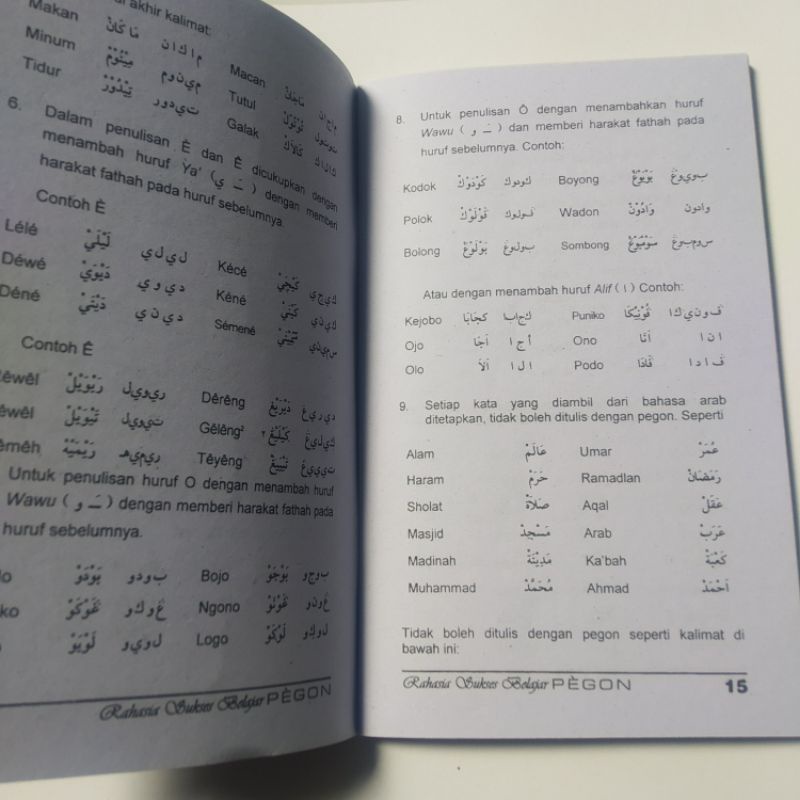 akhir kalimat:
Makan مَاكَانْ م ا ك ا ن Macan مَاچَانْ م ا چ ا ن
Minum مِيْنُوْمْ م ي ن و م Tutul تُوْتُوْلْ ت و ت و ل
Tidur تِيْدُوْرْ ت ي د و ر Galak گَالَاكْ گ ا ل ا ك
6. Dalam penulisan È dan Ê dicukupkan dengan
menambah huruf Ya' (ـَ ي) dengan memberi
harakat fathah pada huruf sebelumnya.
Contoh È
Lélé لَيْلَيْ ل ي ل ي Kécé كَيْچَيْ ك ي چ ي
Déwé دَيْوَيْ د ي و ي Kéné كَيْنَيْ ك ي ن ي
Déné دَيْنَيْ د ي ن ي Sémené س م ي ن ي
Contoh Ê
رَيْوَيْلْ ر ي و ي ل Dêrêng دَيْرَيْڠْ د ي ر ي ڠ
تَيْوَيْلْ ت ي و ي ل Gêlêng² گَيْلَيْڠْ ٢ گ ي ل ي ڠ
رَيْمَيْهْ ر ي م ي ه Têyêng تَيْيَيْڠْ ت ي ي ي ڠ
Untuk penulisan huruf O dengan menambah huruf
Wawu ( ـَ و ) dengan memberi harakat fathah pada
huruf sebelumnya.
بَوْدَوْ ب و د و Bojo بَوْجَوْ ب و ج و
ڠَوْكَوْ ڠ و ك و Ngono ڠَوْنَوْ ڠ و ن و
لَوْيَوْ ل و ي و Logo لَوْكَوْ ل و ك و
Rahasia Sukses Belajar PÈGON
8. Untuk penulisan Ô dengan menambahkan huruf
Wawu ( ـَ و ) dan memberi harakat fathah pada
huruf sebelumnya. Contoh:
Kodok كَوْدَوْكْ ك و د و ك Boyong بَوْيَوْڠْ ب و ي و ڠ
Polok ڤَوْلَوْكْ ڤ و ل و ك Wadon وَادَوْنْ و ا د و ن
Bolong بَوْلَوْڠْ ب و ل و ڠ Sombong سَوْمْبَوْڠْ س و م ب و ڠ
Atau dengan menambah huruf Alif ( ا ) Contoh:
Kejobo كجَابَا ك ج ا ب ا Puniko ڤُوْنِيْكَا ڤ و ن ي ك ا
Ojo أَجَا أ ج ا Ono أَنَا ا ن ا
Olo أَلَا ا ل ا Podo ڤَادَا ڤ ا د ا
9. Setiap kata yang diambil dari bahasa arab
ditetapkan, tidak boleh ditulis dengan pegon. Seperti
Alam عَالَمْ Umar عُمَرْ
Haram حَرَمْ Ramadlan رَمَضَانْ
Sholat صَلَاةْ Aqal عَقَلْ
Masjid مَسْجِدْ Arab عَرَبْ
Madinah مَدِيْنَةْ Ka'bah كَعْبَةْ
Muhammad مُحَمَّدْ Ahmad اَحْمَدْ
Tidak boleh ditulis dengan pegon seperti kalimat di
bawah ini:
Rahasia Sukses Belajar PÈGON 15